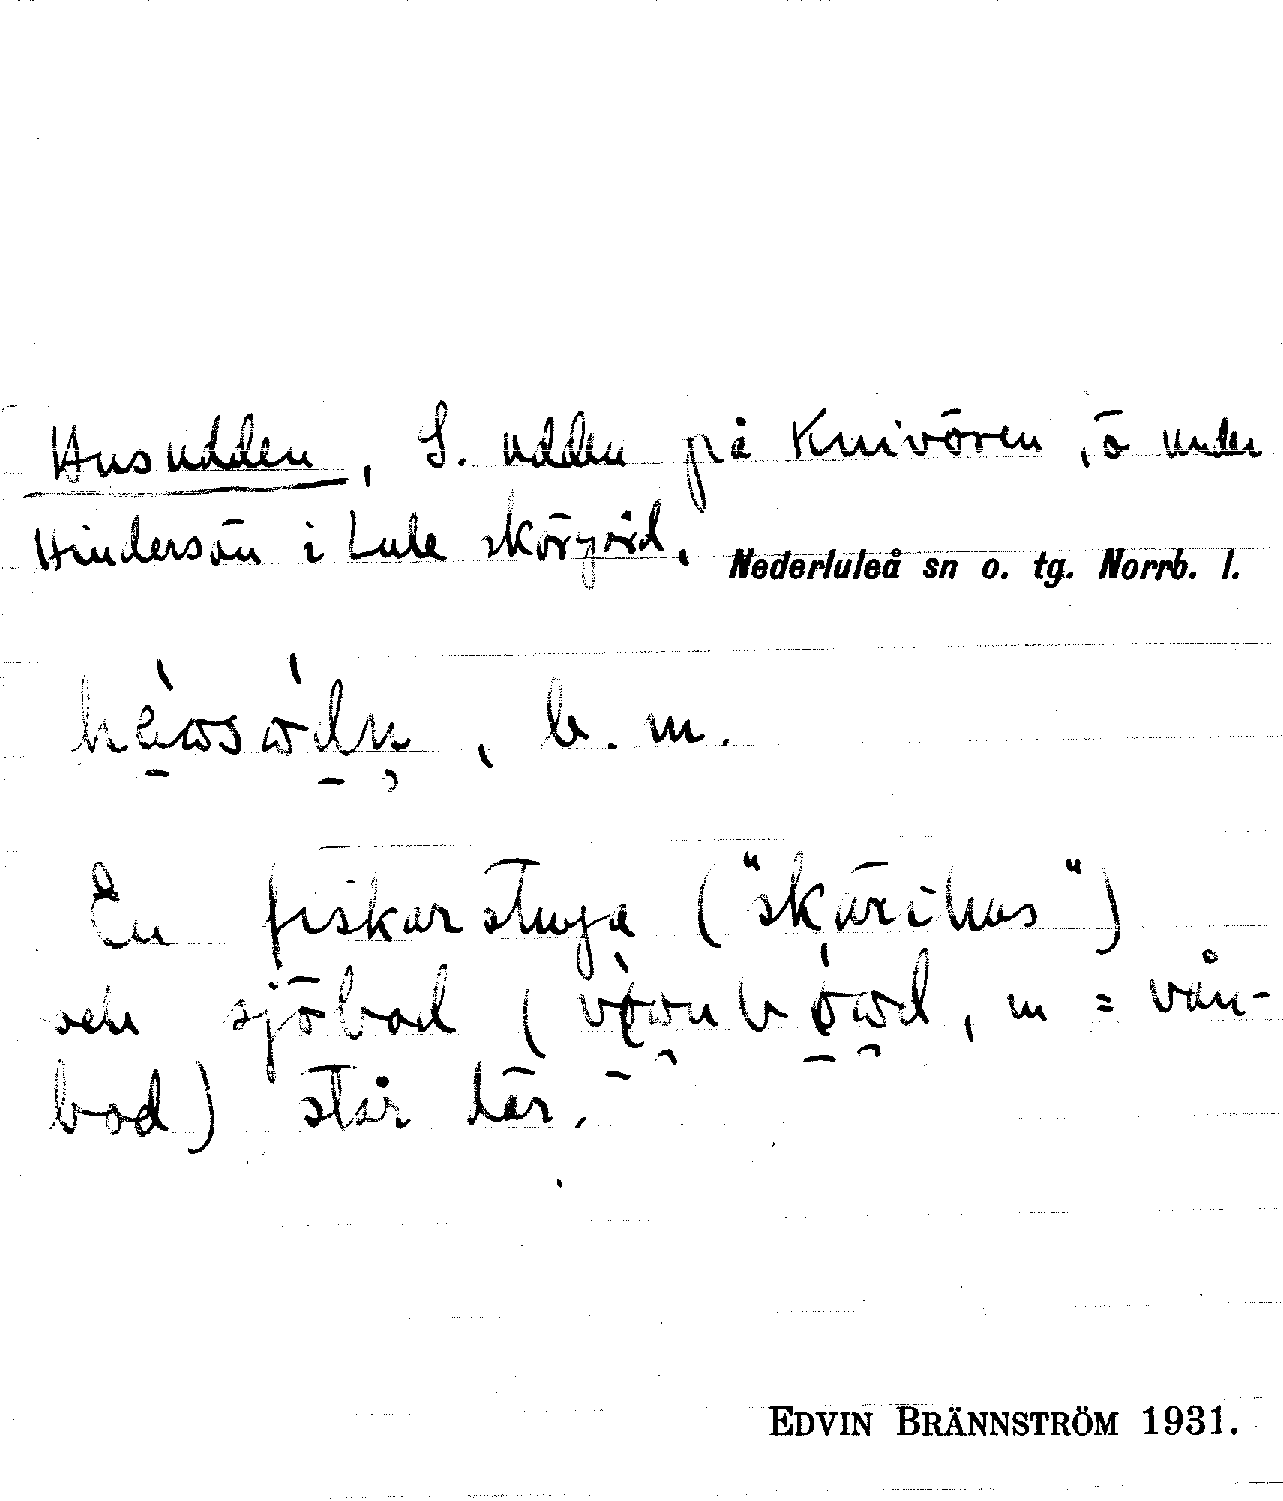 Husudden, S. udden på Knivören, ö under
Hindersön i Lule skärgård. Nederluleå sn o. tg. Norrb. l.
b. m.
En fiskarstuga ("skärihus")
och sjöbod ( , m = vån-
bod) står här.
EDVIN BRÄNNSTRÖM 1931.